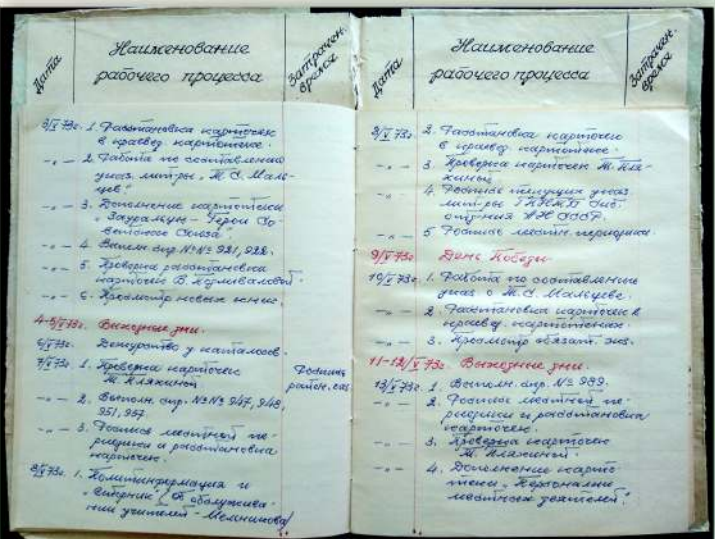 Дата
Наименование
рабочего процесса
Затрачен.
время
3/V 73г. 1. Расстановка карточек
в краевед. картотеке.
-"- 2. Работа по составлению
указ. лит-ры „Т. С. Маль-
цев"
-"- 3. Дополнение картотеки
„Зауральцы - Герои Со-
ветского Союза".
-"- 4. Выполн. спр. №№ 921, 922.
-"- 5. Проверка расстановки
карточек В.
-"- 6. Просмотр новых книг.
4-5/V 73г. Выходные дни.
6/V 73г. Дежурство у каталогов.
7/V 73г. 1. Проверка карточек
Т. Пляхиной
Роспись
район. газ.
-"- 2. Выполн. спр. №№ 947, 948,
951, 957
-"- 3. Роспись местной пе-
риодики и расстановка
карточек.
8/V 73г. 1. Политинформация и
(Б. обслужива-
нии учителей - Мельникова)
Дата
Наименование
рабочего процесса
Затрачен.
время
8/V 73г. 2. Расстановка карточек
в краевед. картотеке.
-"- 3. Проверка карточек Т. Пля-
хиной
-"- 4. Роспись текущих указ.
лит-ры ГПНТБ Сиб.
отд-ния АН СССР.
-"- 5. Роспись местн. периодики.
9/V 73г. День Победы.
10/V 73г. 1. Работа по составлению
указ. о Т. С. Мальцеве.
-"- 2. Расстановка карточек в
краевед. картотеках.
-"- 3. Просмотр обязат. экз.
11-12/V 73г. Выходные дни.
13/V 73г. 1. Выполн. спр. № 989.
-"- 2. Роспись местной пе-
риодики и расстановка
карточек.
-"- 3. Проверка карточек
Т. Пляхиной.
-"- 4. Дополнение карто-
теки „Персоналии
местных деятелей".